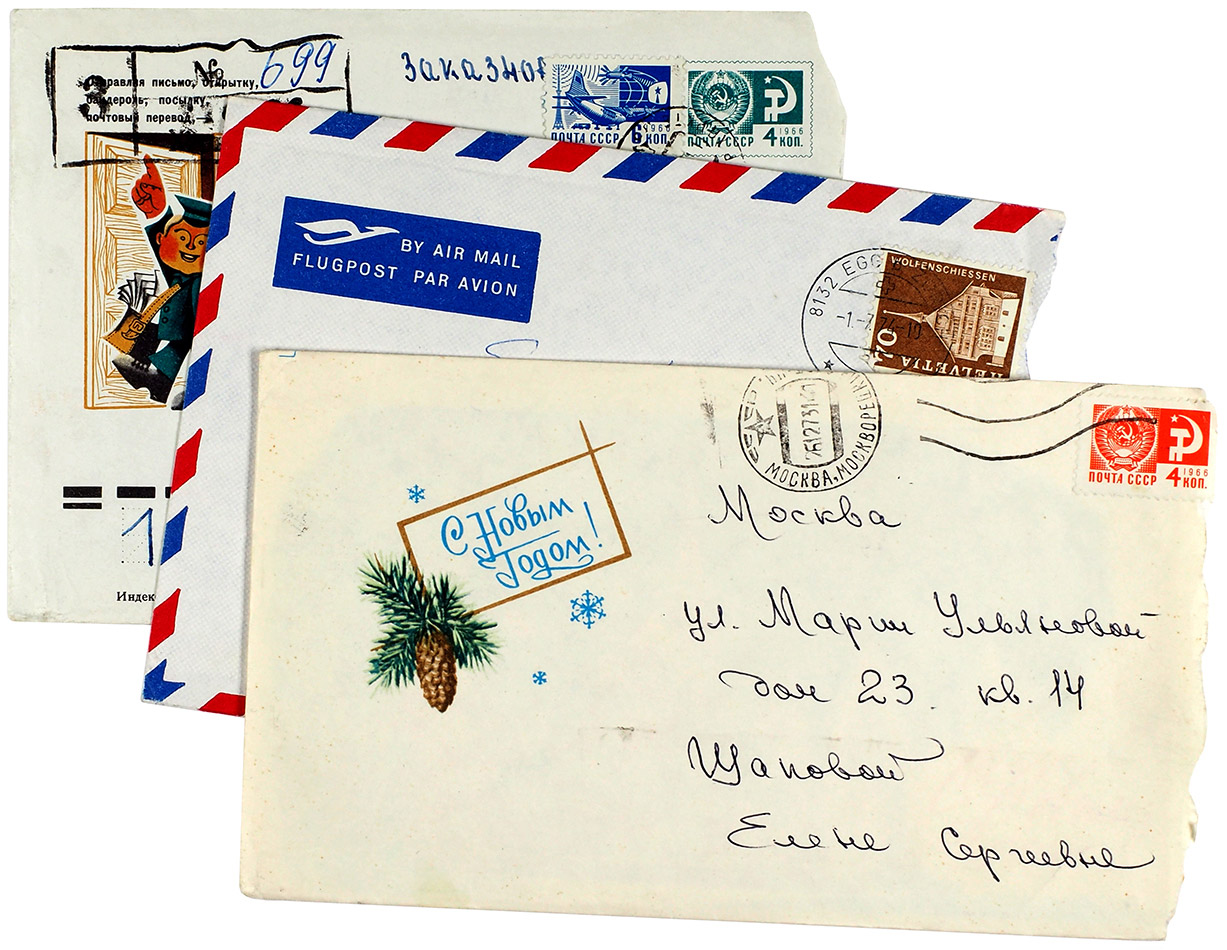 № 699
Отправляя письмо, открытку,
бандероль, посылку,
почтовый перевод,—
З
Заказное
1966
ПОЧТА СССР 6 КОП.
1966
ПОЧТА СССР 4 КОП.
Индекс
BY AIR MAIL
FLUGPOST PAR AVION
8132 EGG
WOLFENSCHIESSEN
70
HELVETIA
МОСКВА,
1966
ПОЧТА СССР 4 КОП.
С Новым
Годом!
Москва
ул. Марии Ульяновой
дом 23. кв. 14
Щаповой
Елене Сергеевне